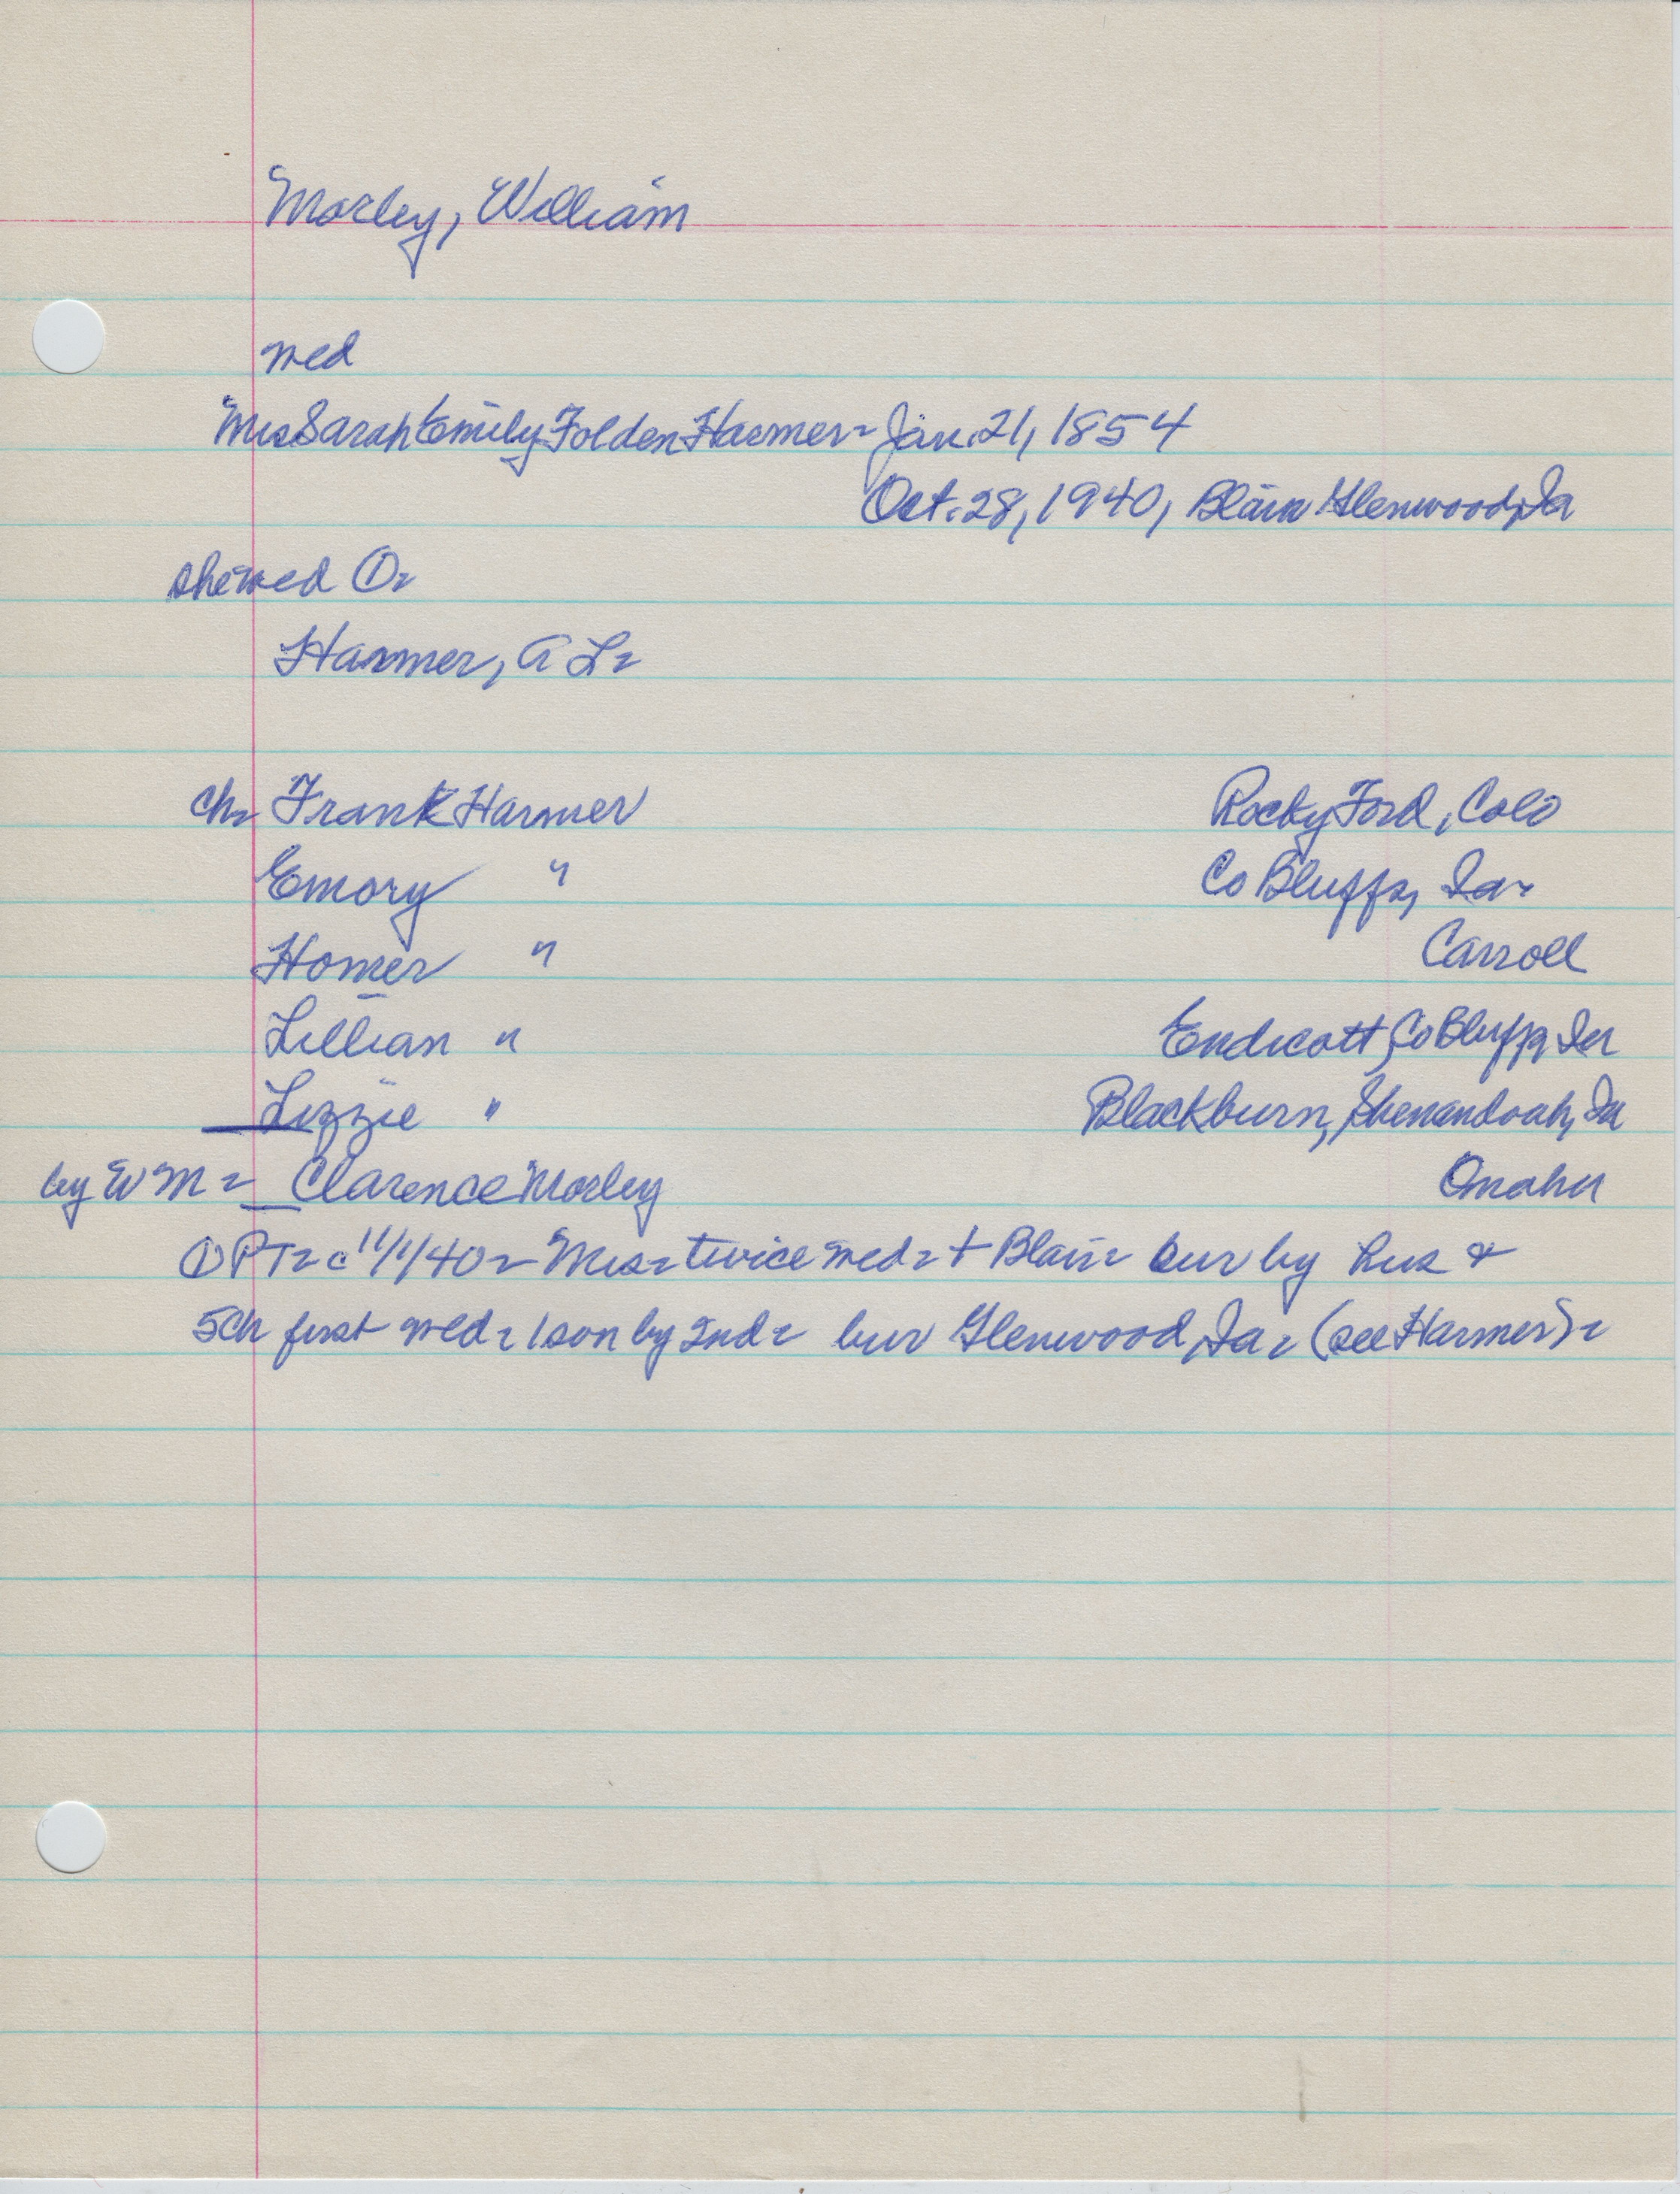 Morley, William
wed
Mrs Sarah Emily Folden Harmer - Jan. 21, 1854
Oct. 28, 1940, Blair Glenwood, Ia
she wed O-
Harmer, A L-
ch- Frank Harmer Rocky Ford, Colo
Emory " Co Bluffs, Ia-
Homer " Carroll
Lillian " Endicott, Co Bluffs, Ia
Lizzie " Blackburn, Shenandoah, Ia
by W M - Clarence Morley Omaha
① PT- c 11/1/40 - Mrs- twice wed- + Blair- bur by hus &
5 ch first wed- 1 son by 2nd- bur Glenwood, Ia- (see Harmer)-